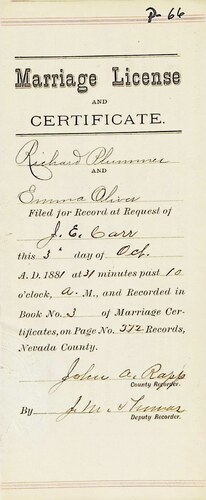 P-66
Marriage License
AND
CERTIFICATE.
Richard Plummer
AND
Emma Oliver
Filed for Record at Request of
J. E. Carr
this 3d day of Oct.
A. D. 1881 at 31 minutes past 10
o'clock, A. M., and Recorded in
Book No. 3 of Marriage Cer-
tificates, on Page No. 572 Records,
Nevada County.
John A. Rapp
County Recorder.
By J. M.
Deputy Recorder.